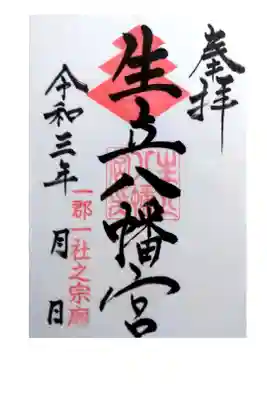 奉拝
生立八幡宮
一郡一社之宗廟
令和三年 月 日